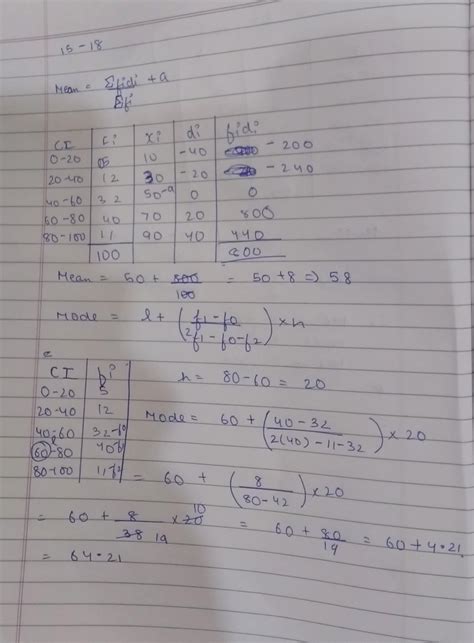 15-18
Mean = Σfidi + a
Σfi
CI fi xi di fidi
0-20 5 10 -40 -200
20-40 12 30 -20 -240
40-60 32 50-a 0 0
60-80 40 70 20 800
80-100 11 90 40 440
100 800
Mean = 50 + 800/100 = 50+8 => 58
Mode = l + (f1-f0 / 2f1-f0-f2) × h
CI fi
0-20 5
20-40 12
40-60 32-f0
60-80 40
80-100 11f2
h = 80-60 = 20
Mode = 60 + (40-32 / 2(40)-11-32) × 20
= 60 + (8 / 80-42) × 20
= 60 + 8/38 19 × 20 10 = 60 + 80/19 = 60+4.21
= 64.21